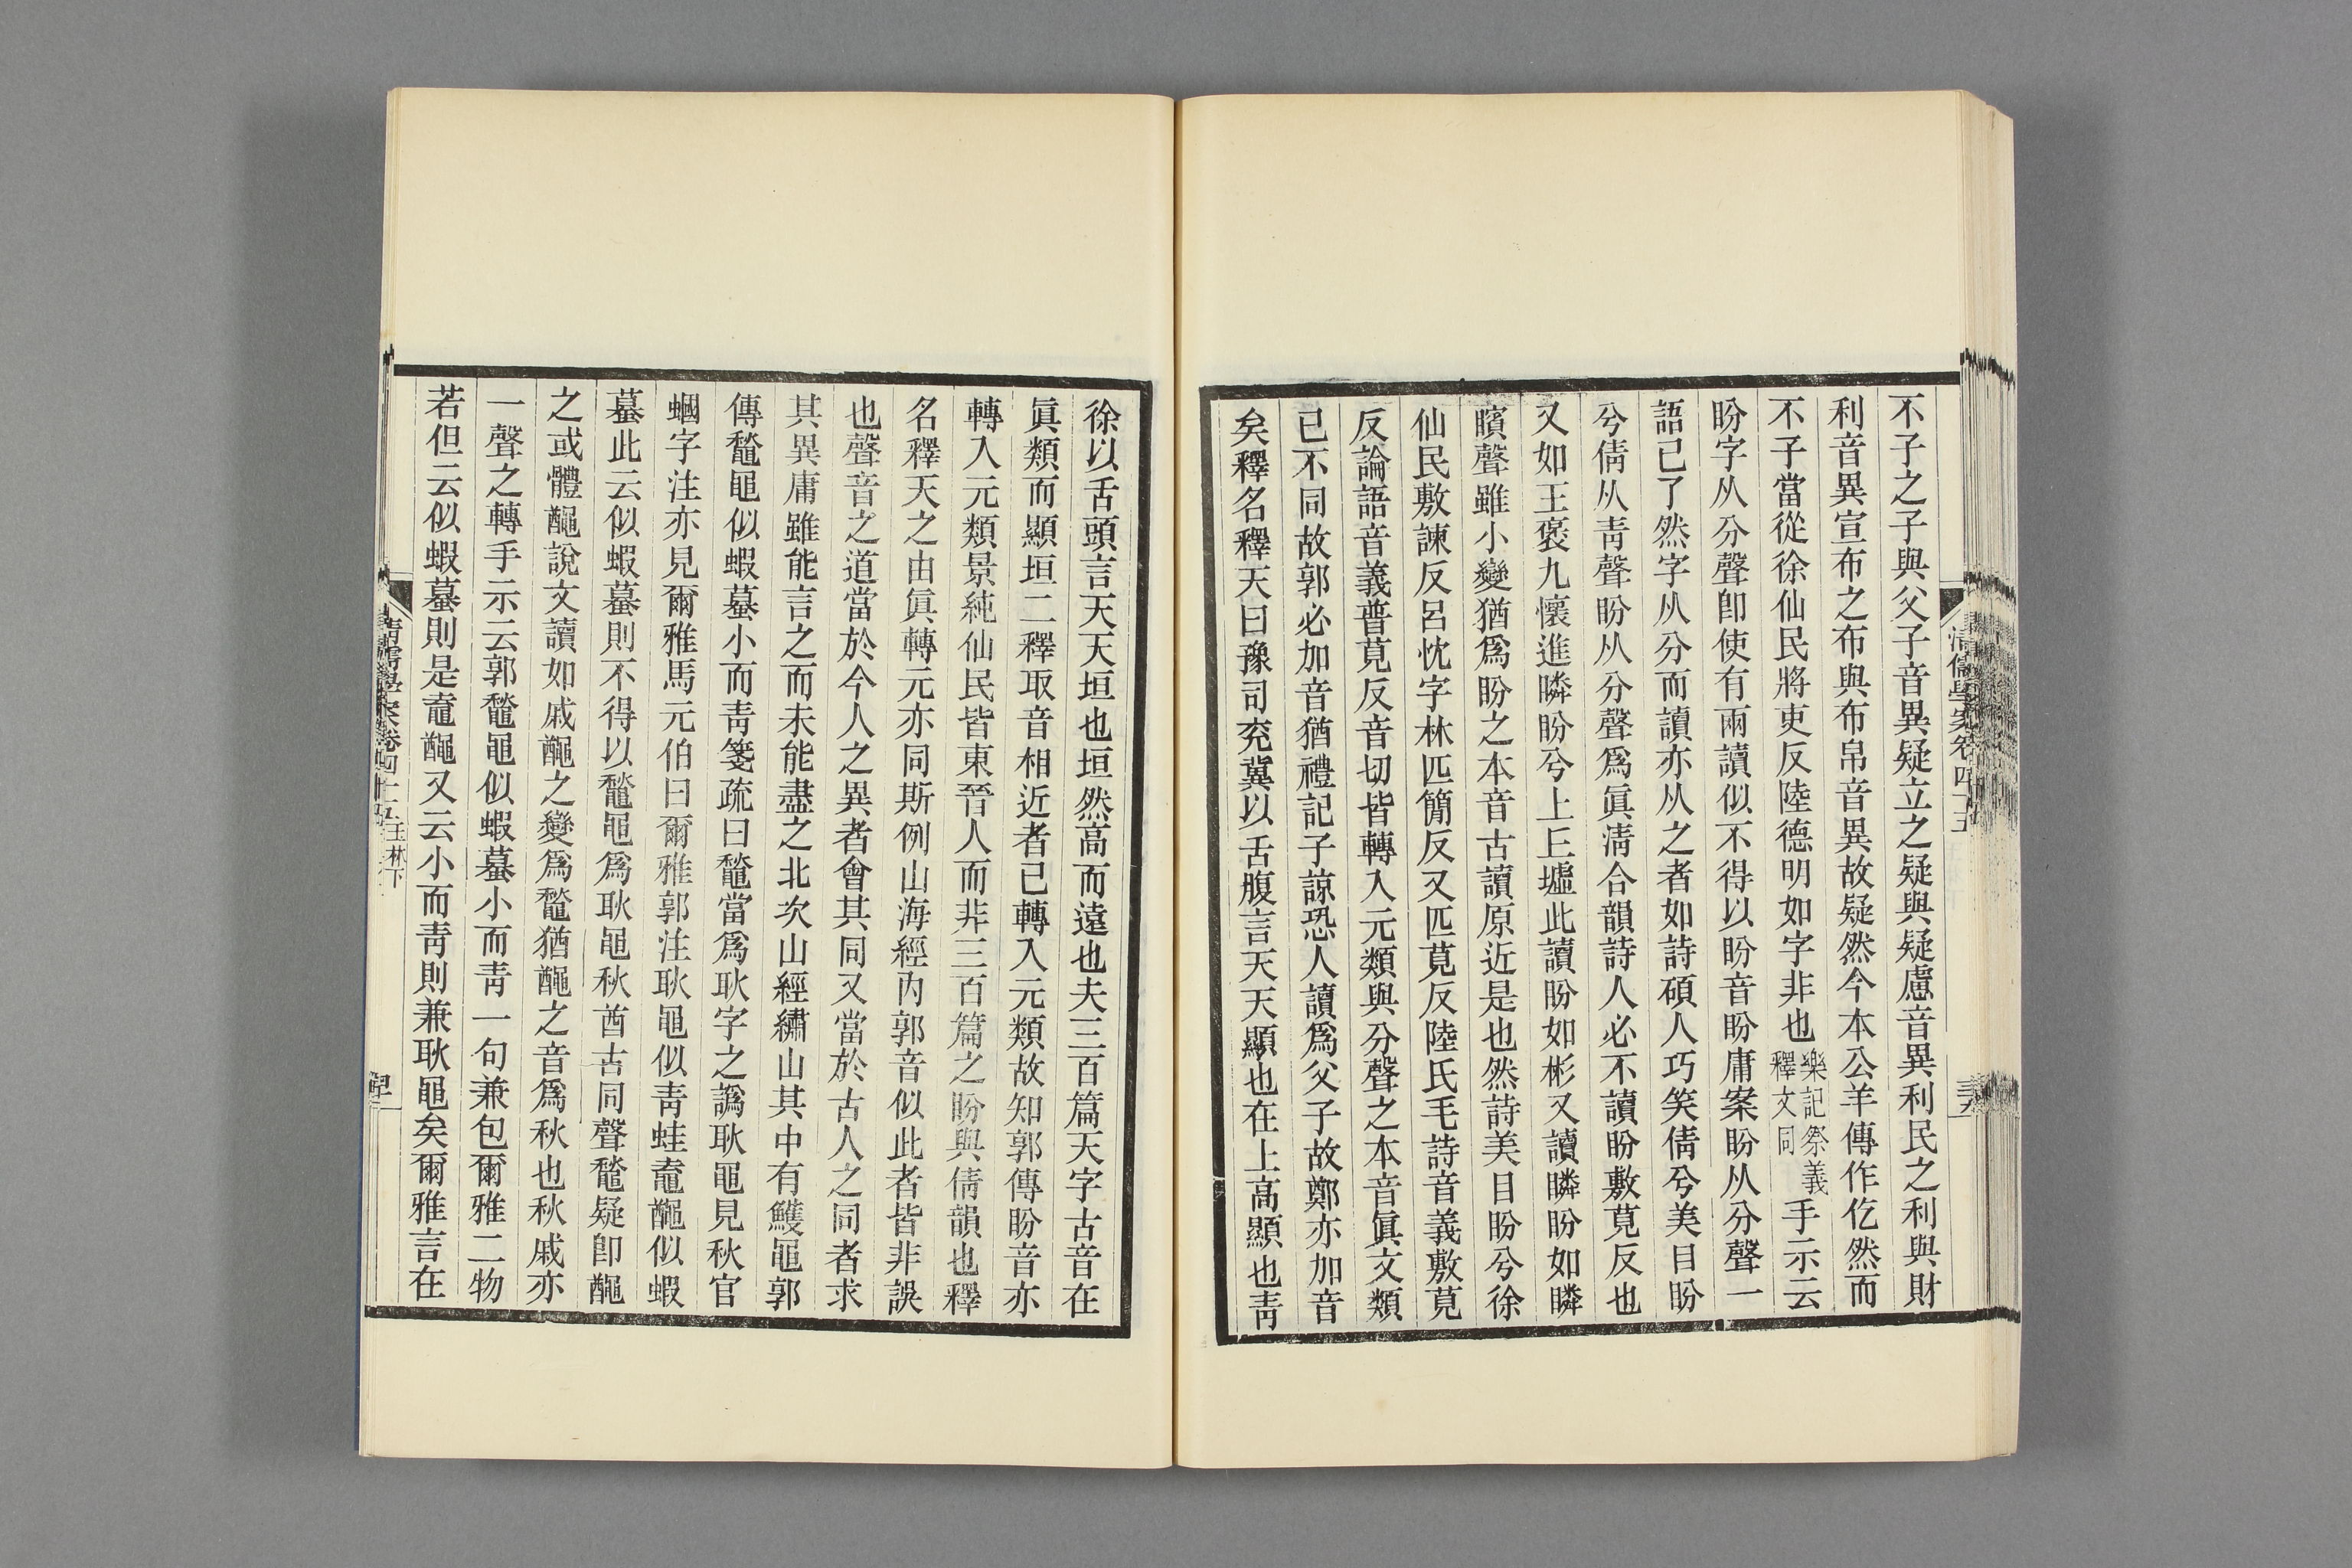 不子之子與父子音異疑立之疑與疑慮音異利民之利與財
利音異宣布之布與布帛音異故疑然今本公羊傳作仡然而
不子當從徐仙民將吏反陸德明如字非也樂記祭義釋文同手示云
盼字从分聲卽使有兩讀似不得以盼音盼庸案盼从分聲一
語已了然字从分而讀亦从之者如詩碩人巧笑倩兮美目盼
兮倩从靑聲盼从分聲爲眞淸合韻詩人必不讀盼敷莧反也
又如王褒九懷進瞵盼兮上丘墟此讀盼如彬又讀瞵盼如瞵
矉聲雖小變猶爲盼之本音古讀原近是也然詩美目盼兮徐
仙民敷諫反呂忱字林匹簡反又匹莧反陸氏毛詩音義敷莧
反論語音義普莧反音切皆轉入元類與分聲之本音眞文類
已不同故郭必加音猶禮記子諒恐人讀爲父子故鄭亦加音
矣釋名釋天曰豫司兖冀以舌腹言天天顯也在上高顯也靑
徐以舌頭言天天垣也垣然高而遠也夫三百篇天字古音在
眞類而顯垣二釋取音相近者已轉入元類故知郭傳盼音亦
轉入元類景純仙民皆東晉人而非三百篇之盼與倩韻也釋
名釋天之由眞轉元亦同斯例山海經內郭音似此者皆非誤
也聲音之道當於今人之異者會其同又當於古人之同者求
其異庸雖能言之而未能盡之北次山經繡山其中有鱯黽郭
傳鼀黽似蝦蟇小而靑箋疏曰鼀當爲耿字之譌耿黽見秋官
蟈字注亦見爾雅馬元伯曰爾雅郭注耿黽似靑蛙鼀䵸似蝦
蟇此云似蝦蟇則不得以鼀黽爲耿黽秋酋古同聲鼀疑卽䵸
之或體䵸說文讀如戚䵸之變爲鼀猶䵸之音爲秋也秋戚亦
一聲之轉手示云郭鼀黽似蝦蟇小而靑一句兼包爾雅二物
若但云似蝦蟇則是鼀䵸又云小而靑則兼耿黽矣爾雅言在